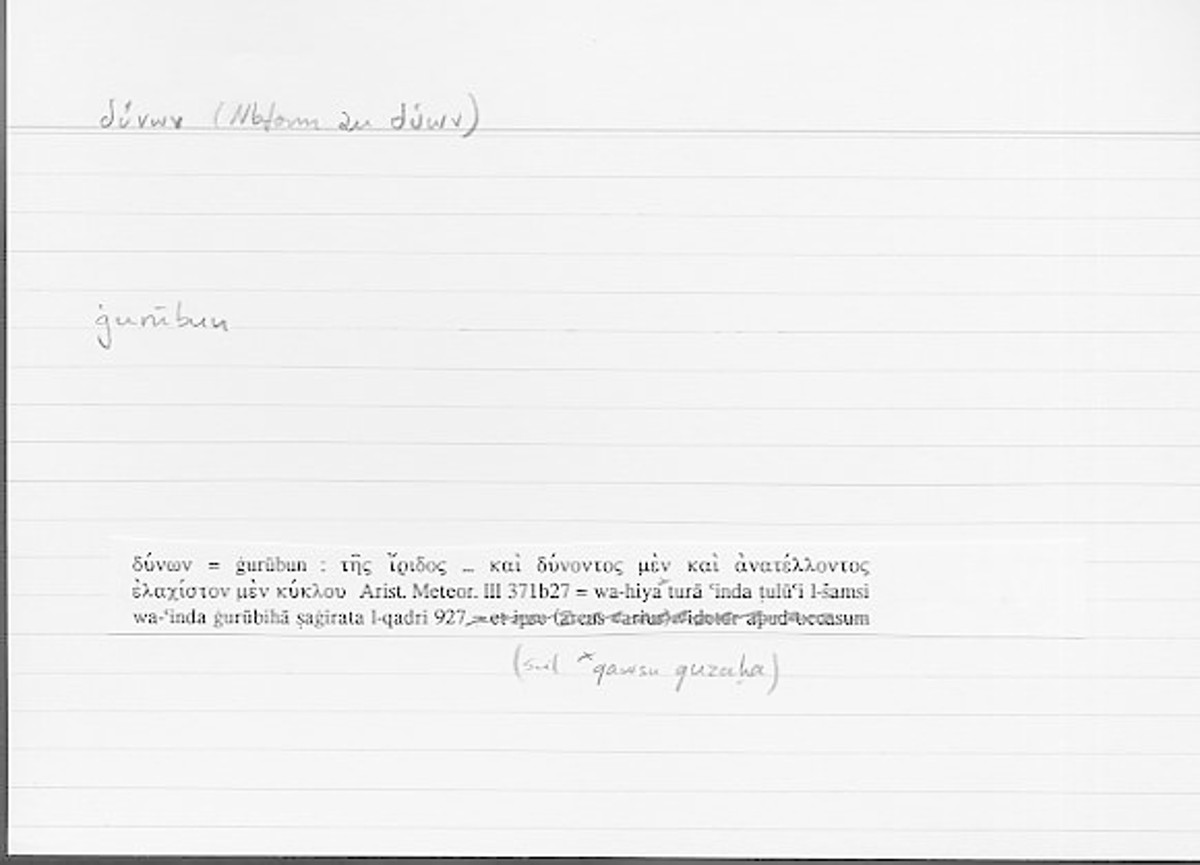 δύνων (Nbform zu δύων)
ġurūbun
δύνων = ġurūbun : τῆς ἴριδος ... καὶ δύνοντος μὲν καὶ ἀνατέλλοντος
ἐλαχίστον μὲν κύκλου Arist. Meteor. III 371b27 = wa-hiya turā ʿinda ṭulūʿi l-šamsi
wa-ʿinda ġurūbihā ṣaġirata l-qadri 927, = et ipse (arcus varius) videtur apud occasum
(scil *qawsu quzaḥa)